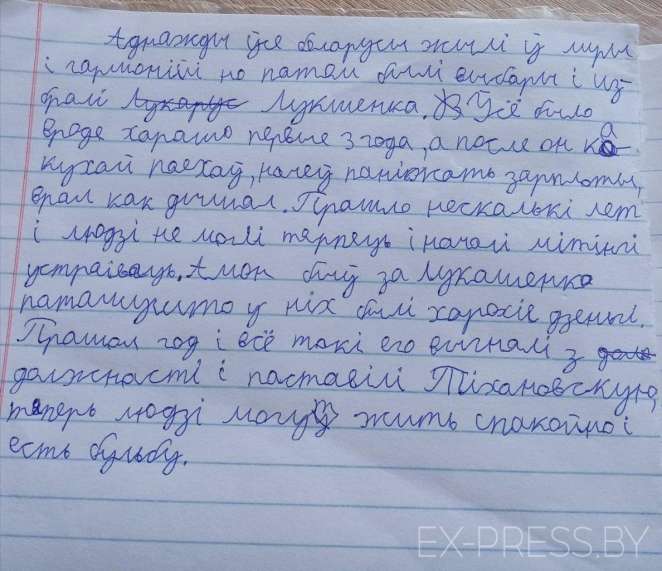 Аднажды ўсе бларусы жылі ў миры
і гармоніи но патам былі выбары і из-
бралі Лукарус Лукшенка. Ўсё было
вроде харашо первые 3 года, а после он ка-
кухай паехаў, начеў паніжать зарплоты,
врал как дышал. Прашло нескалькі лет
і людзі не моглі тярпець і началі мітінгі
устраіваць. Амон быў за Лукашенка
паташушто у ніх былі харохіе дзеньгі.
Прашол год і всё такі его выгналі з доле
должнасті і паставілі Тіхановскую,
тяперь людзі могуць жить спакойно і
есть бульбу.
EX-PRESS.BY